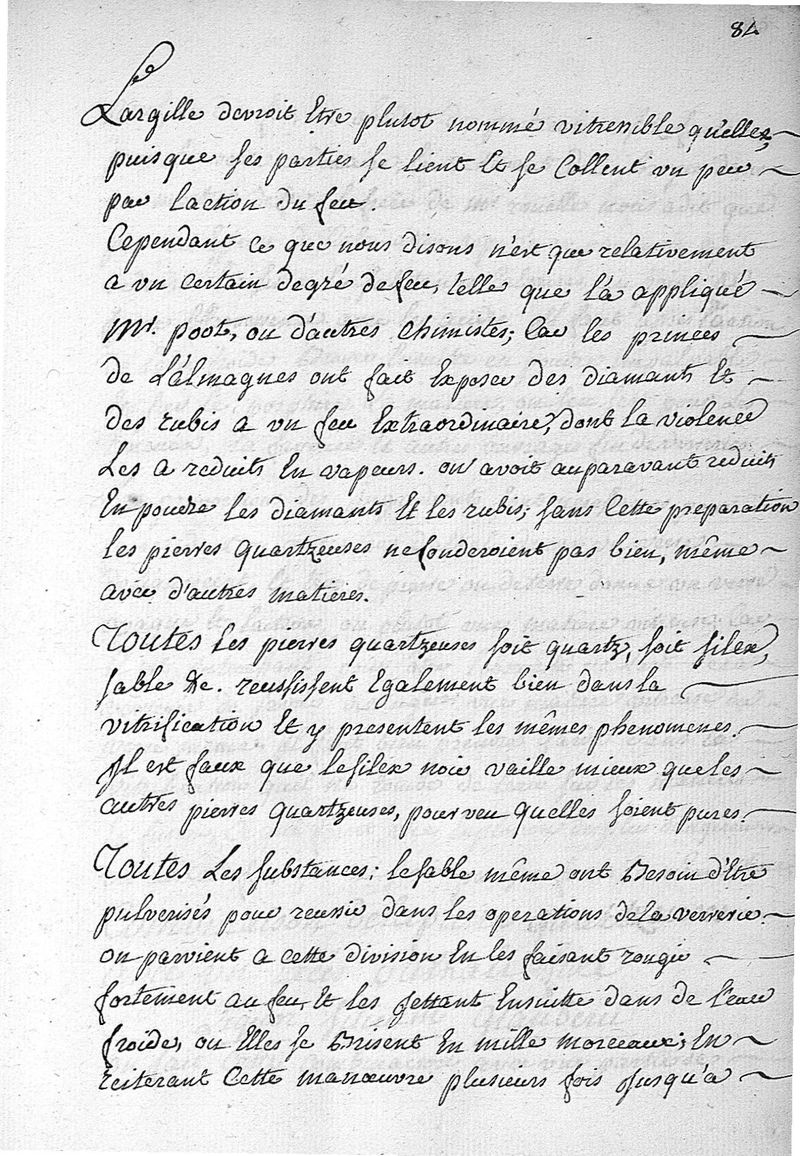 84
Largille devroit Etre plutot nommé vitrescible qu'elles
puisque ses parties se lient Et se Collent vn peu
par laction du feu.
Cependant ce que nous disons n'est que relativement
a vn certain degré de feu, telle que l'a appliqué
Mr. poot, ou d'autres Chimistes; Car les princes
de L'almagnes ont fait Exposer des diamants Et
des rubis a vn feu Extraordinaire, dont la violence
Les a reduits En vapeurs. on avoit auparavant reduits
En poudre les diamants Et les rubis; sans Cette preparation
les pierres quartzeuses ne fonderoient pas bien, même
avec d'autres matières.
Toutes Les pierres quartzeuses soit quartz, soit silex,
sable &c. reussissent Egalement bien dans la
vitrification Et y presentent les mêmes phenomenes.
Il est faux que le silex noir vaille mieux que les
autres pierres quartzeuses, pourveu quelles soient pures.
Toutes Les substances; le sable même ont Besoin d'Etre
pulverisés pour reussir dans les operations de la verrerie.
on parvient a cette division En les faisant rougir
fortement au feu, Et les jettant Ensuitte dans de l'eau
froide, ou Elles se Brisent En mille morceaux; En
reiterant Cette manœuvre plusieurs fois jusqu'a